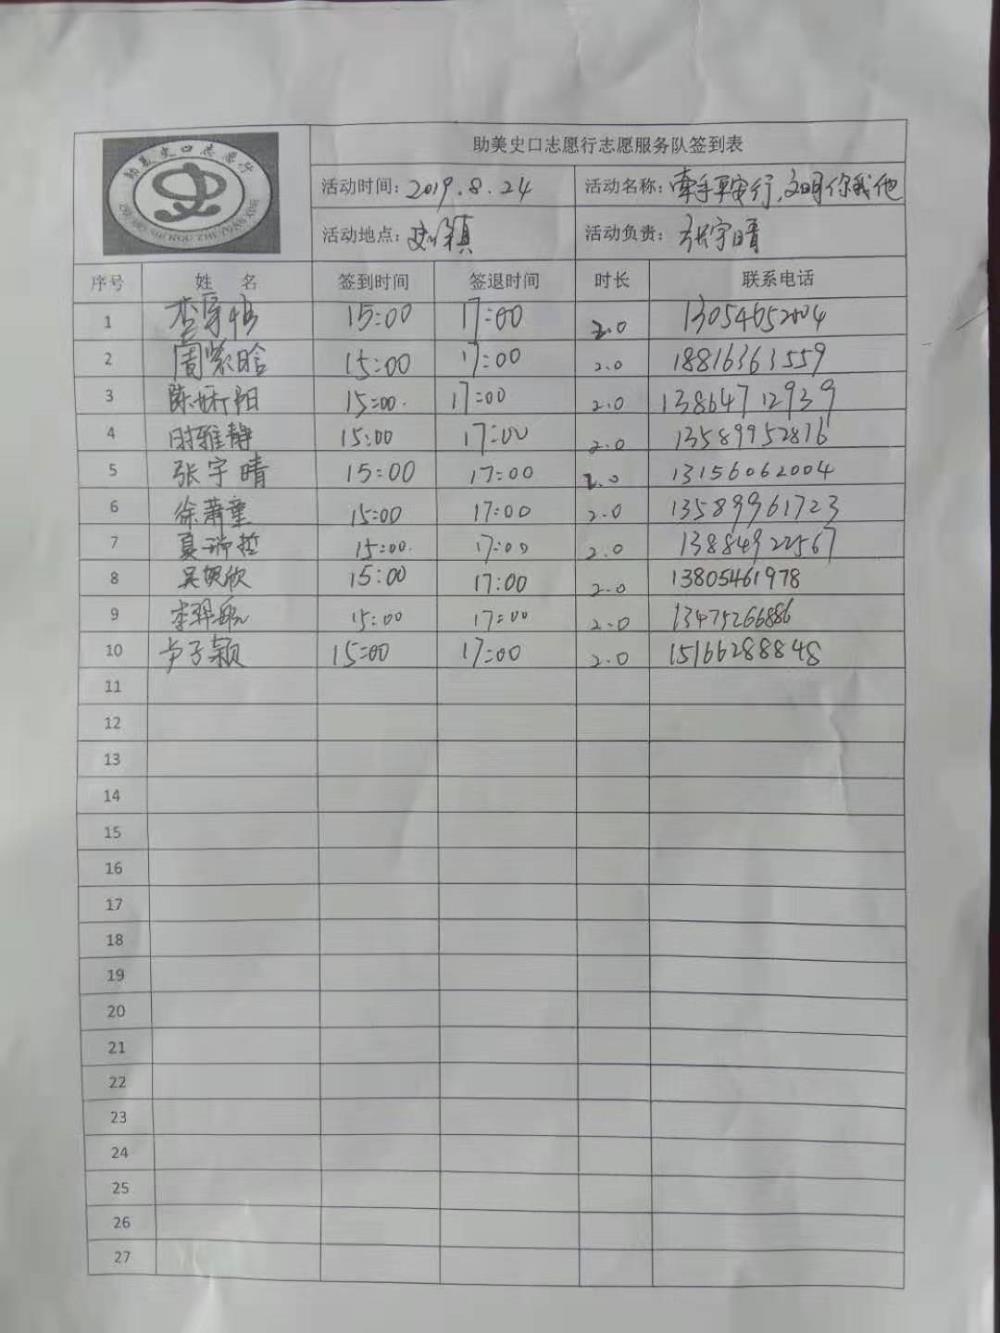 助美史口志愿行
助美史口志愿行志愿服务队签到表
活动时间：2019.8.24 活动名称：牵手平安行，文明你我他
活动地点：史口镇 活动负责：张宇晴
序号 姓 名 签到时间 签退时间 时长 联系电话
1 15:00 17:00 2.0 13054652004
2 周紫晗 15:00 17:00 2.0 18816363559
3 陈妍阳 15:00. 17:00 2.0 13864712939
4 时雅静 15:00 17:00 2.0 13589952816
5 张宇晴 15:00 17:00 2.0 13156062004
6 徐萧童 15:00 17:00 2.0 13589961723
7 夏瑞哲 15:00. 17:00 2.0 13884922567
8 15:00 17:00 2.0 13805461978
9 15:00 17:00 2.0 13475266886
10 卢子颖 15:00 17:00 2.0 15166288848
11
12
13
14
15
16
17
18
19
20
21
22
23
24
25
26
27